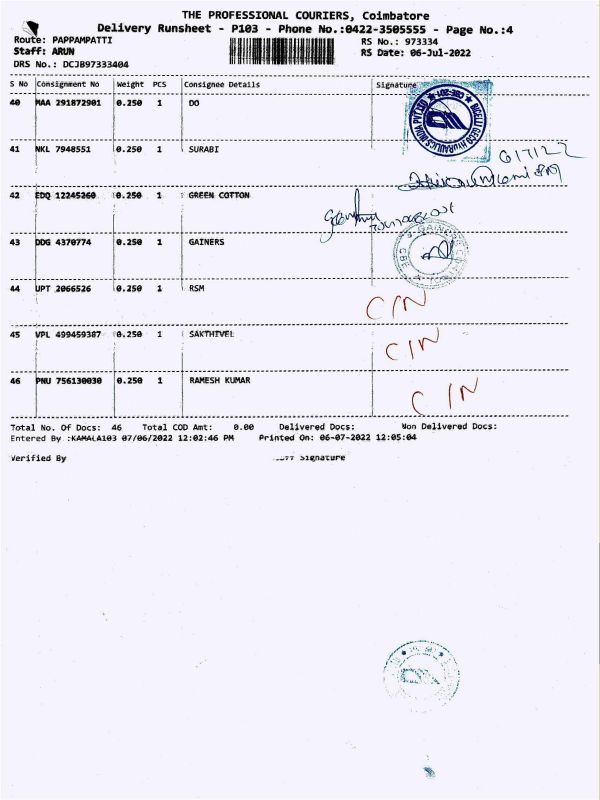 THE PROFESSIONAL COURIERS, Coimbatore
Delivery Runsheet - P103 - Phone No.:0422-3505555 - Page No.:4
Route: PAPPAMPATTI RS No.: 973334
Staff: ARUN RS Date: 06-Jul-2022
DRS No.: DCJB97333404
S No Consignment No Weight PCS Consignee Details Signature
40 MAA 291872901 0.250 1 DO
41 NKL 7948551 0.250 1 SURABI
6/7/22
42 EDQ 12245260 0.250 1 GREEN COTTON
43 DDG 4370774 0.250 1 GAINERS
44 UPT 2066526 0.250 1 RSM
C/N
45 VPL 499459387 0.250 1 SAKTHIVEL
C/N
46 PNU 756130030 0.250 1 RAMESH KUMAR
C/N
Total No. Of Docs: 46 Total COD Amt: 0.00 Delivered Docs: Non Delivered Docs:
Entered By :KAMALA103 07/06/2022 12:02:46 PM Printed On: 06-07-2022 12:05:04
Verified By Signature